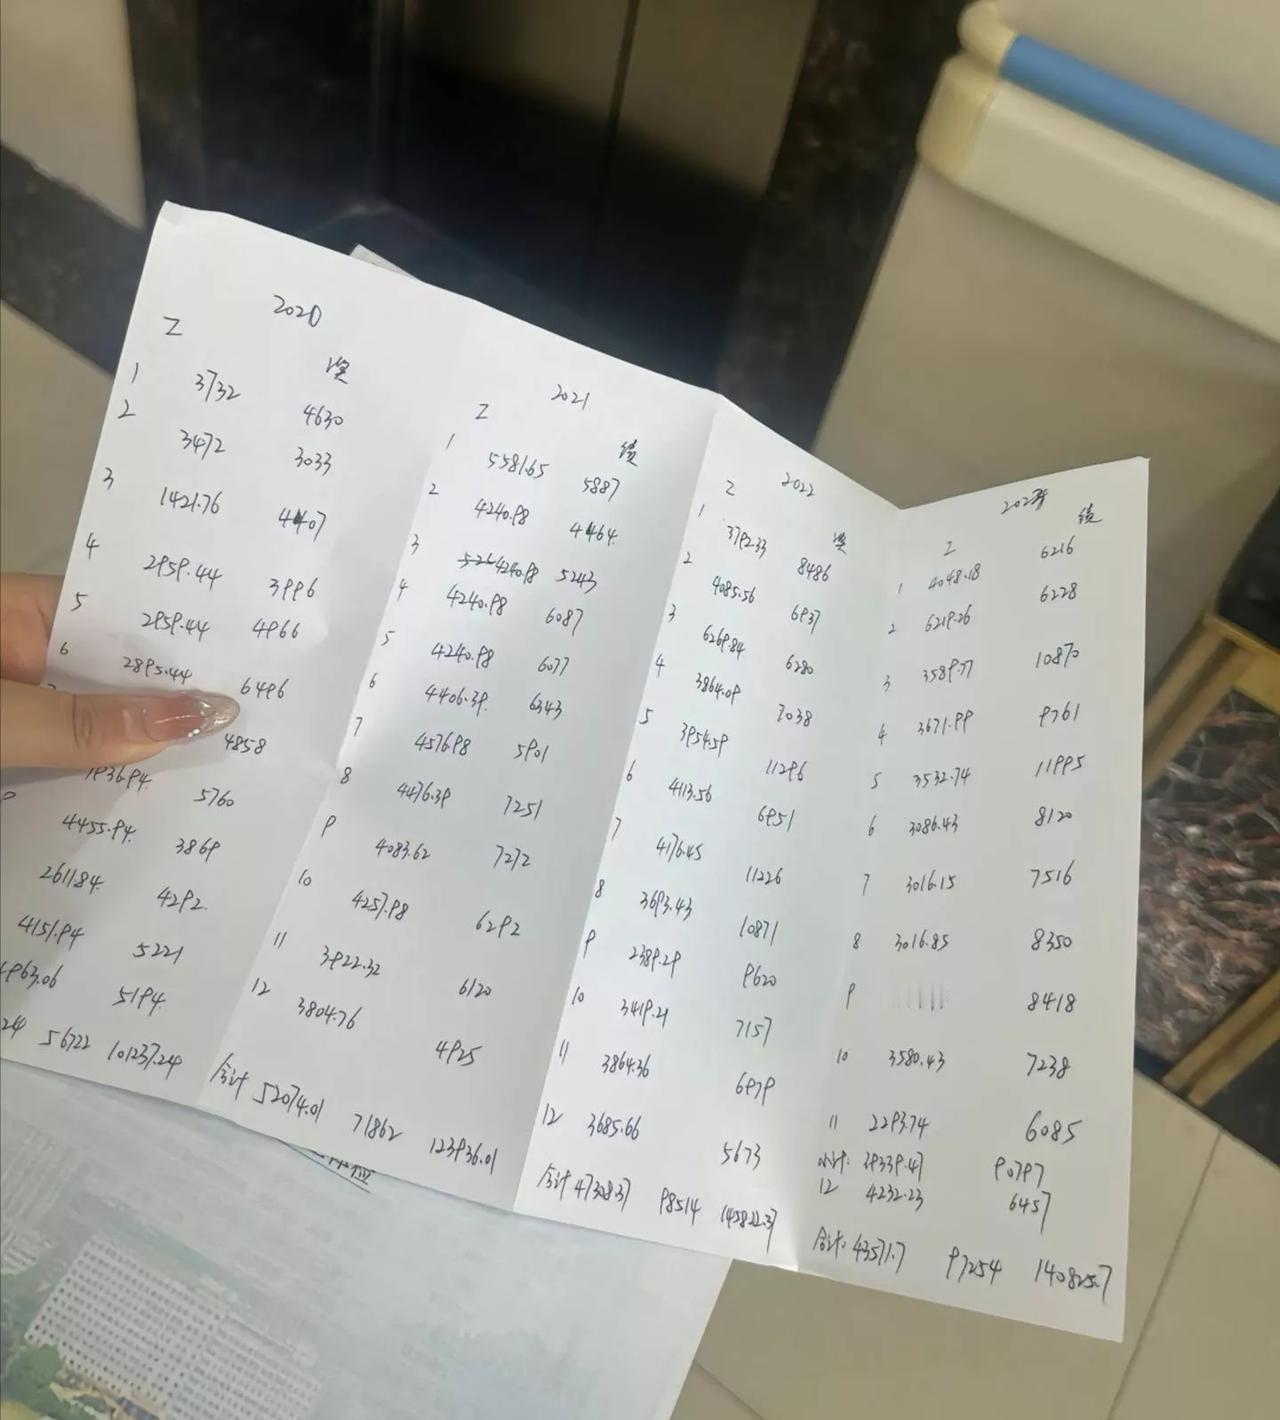 2020
Z 奖
1 3732 4630
2 3472 3033
3 1421.76 4407
4 2959.44 3996
5 2959.44 4966
6 2895.44 6496
4858
1936.94 5760
4455.94 3869
2611.84 4292
4151.94 5221
4963.06 5194
24 56722 101237.24
2021
Z 绩
1 5581.65 5887
2 4240.98 4464
3 4240.98 5243
4 4240.98 6087
5 4240.98 6077
6 4406.39 6343
7 4576.98 5901
8 4476.39 7251
9 4083.62 7272
10 4257.98 6292
11 3922.32 6120
12 3804.76 4925
合计 52074.01 71862 123936.01
2022
Z 奖
1 3792.33 8486
2 4085.56 6937
3 6269.84 6280
4 3864.09 7038
5 3954.59 11296
6 4113.56 6951
7 4176.45 11226
8 3693.43 10871
9 2389.29 9620
10 3419.21 7157
11 3864.36 6979
12 3685.66 5673
合计 47308.37 98514 145822.37
2023年
Z 绩
1 4048.18 6216
2 6219.26 6228
3 3589.77 10870
4 3671.99 9761
5 3532.74 11995
6 3086.43 8120
7 3016.15 7516
8 3016.85 8350
9 8418
10 3580.43 7238
11 2293.74 6085
小计: 39339.47 90797
12 4232.23 6457
合计: 43571.7 97254 140825.7